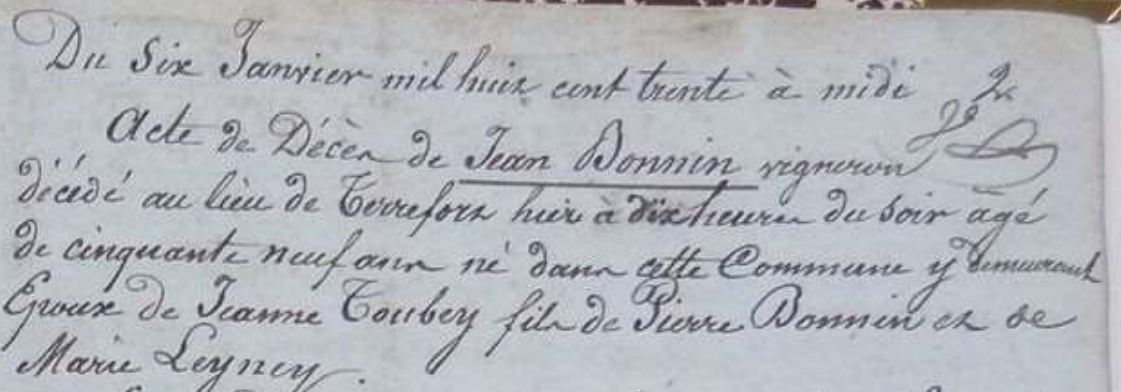 Du Six Janvier mil huit cent trente à midi 2
Acte de Décès de Jean Bonnin vigneron
décédé au lieu de Terrefort hier à dix heures du soir âgé
de cinquante neuf ans né dans cette Commune y demeurant
Epoux de Jeanne Toubey fils de Pierre Bonnin et de
Marie Leyney.